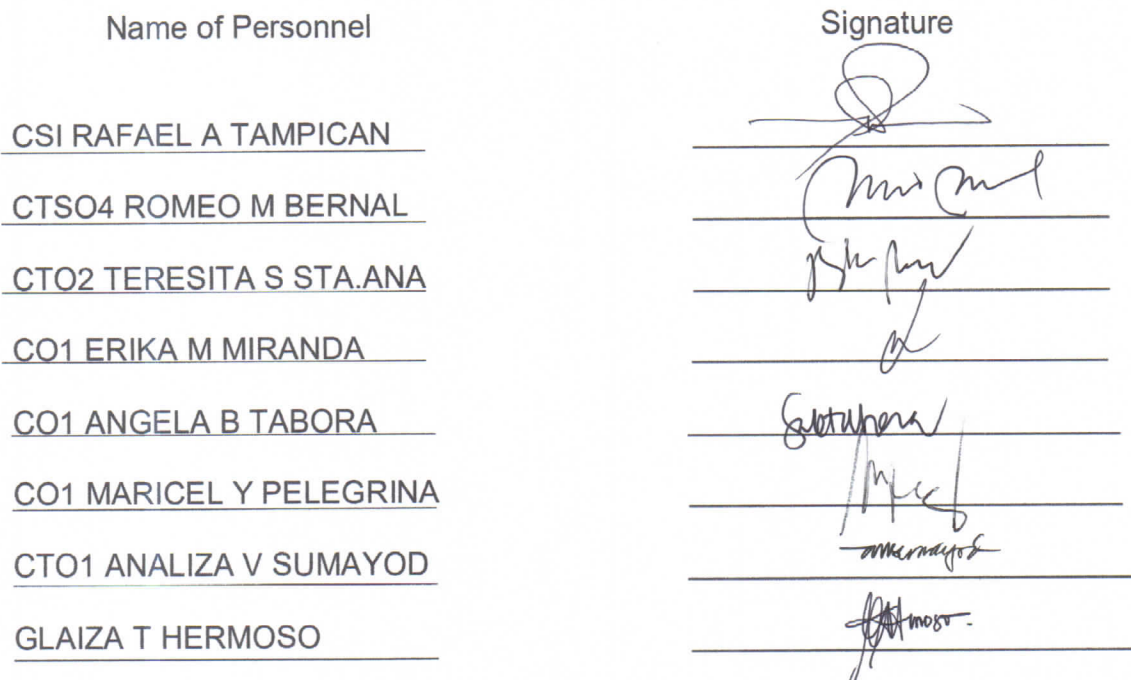 Name of Personnel Signature
CSI RAFAEL A TAMPICAN
CTSO4 ROMEO M BERNAL
CTO2 TERESITA S STA.ANA
CO1 ERIKA M MIRANDA
CO1 ANGELA B TABORA
CO1 MARICEL Y PELEGRINA
CTO1 ANALIZA V SUMAYOD
GLAIZA T HERMOSO